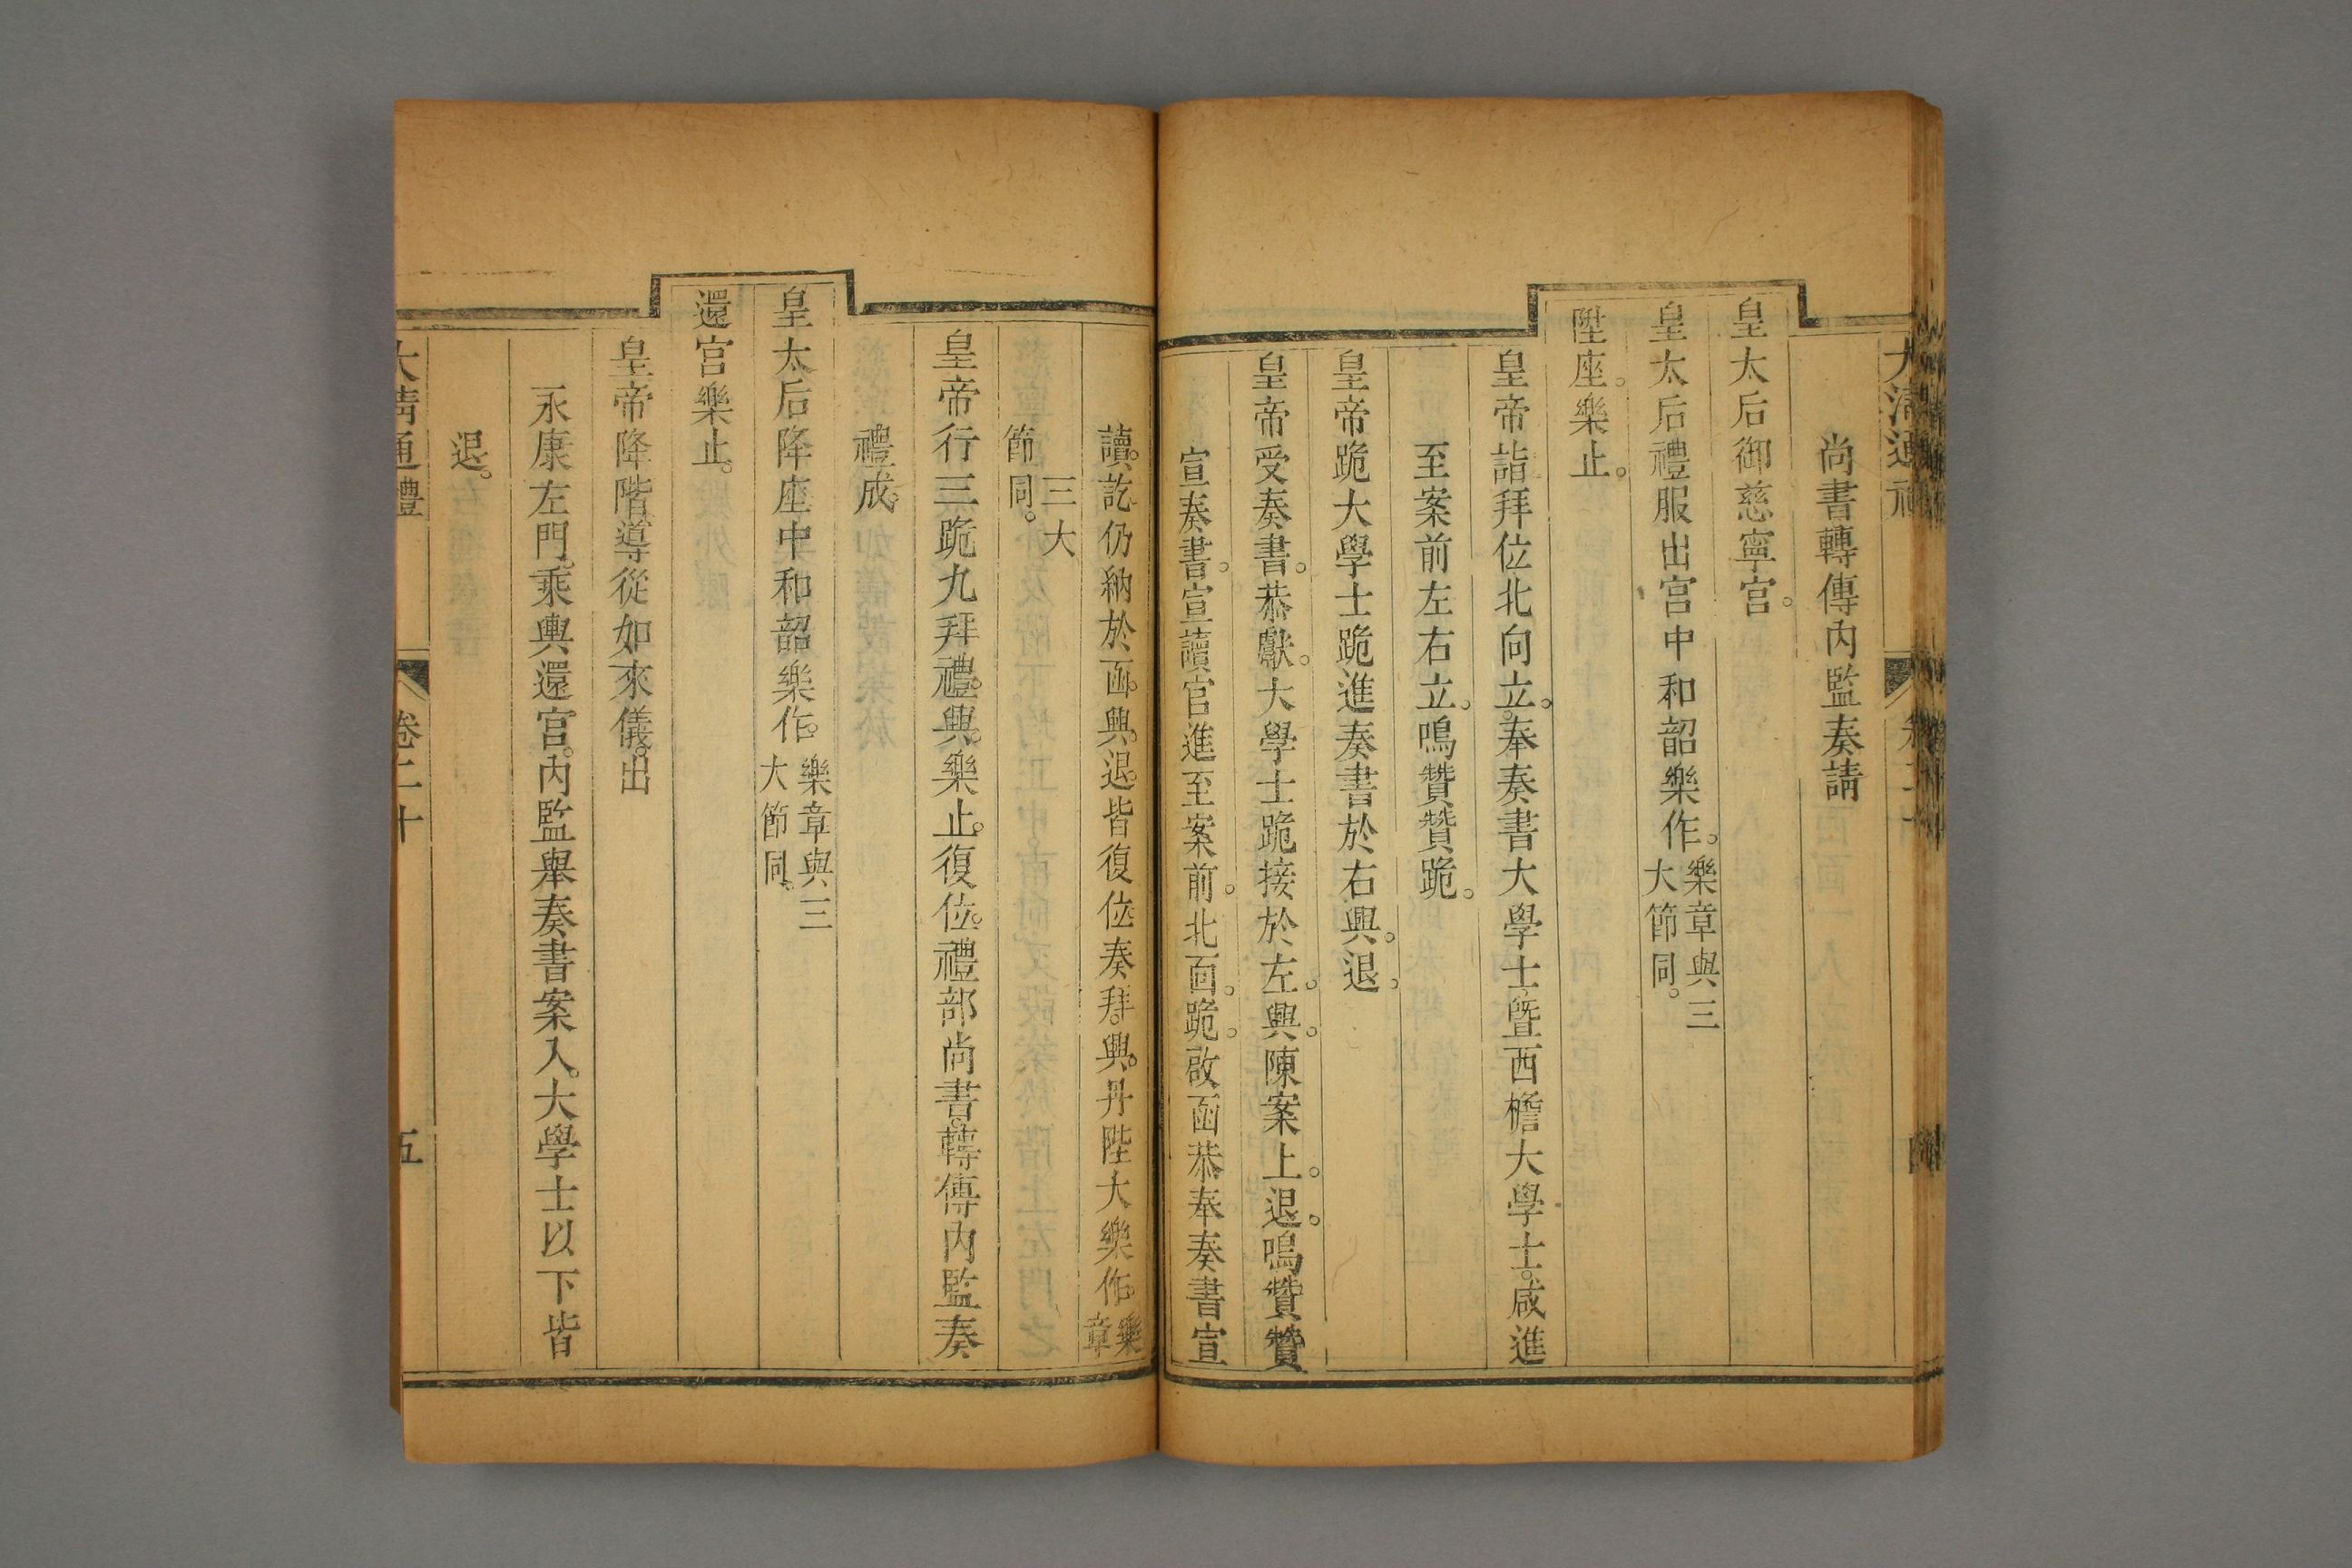 大清通禮
尚書轉傳內監奏請
皇太后御慈寧宮。
皇太后禮服出宮中和韶樂作。樂章與三大節同。
陞座。樂止。
皇帝詣拜位北向立。奉奏書大學士暨西檐大學士。咸進
至案前左右立。鳴贊贊跪。
皇帝跪大學士跪進奏書於右興。退。
皇帝受奏書。恭獻。大學士跪接於左。興。陳案上。退。鳴贊贊
宣奏書。宣讀官進至案前。北面。跪。啟函恭奉奏書宣
讀。訖仍納於函。興。退。皆復位奏拜。興。丹陛大樂作。樂章
三大節同。
皇帝行三跪九拜禮。興。樂止。復位。禮部尚書。轉傳內監奏
禮成。
皇太后降座中和韶樂作。樂章與三大節同。
還宮樂止。
皇帝降階導從如來儀。出
永康左門。乘輿還宮。內監舉奏書案入。大學士以下皆
退。
大清通禮 卷二十 五